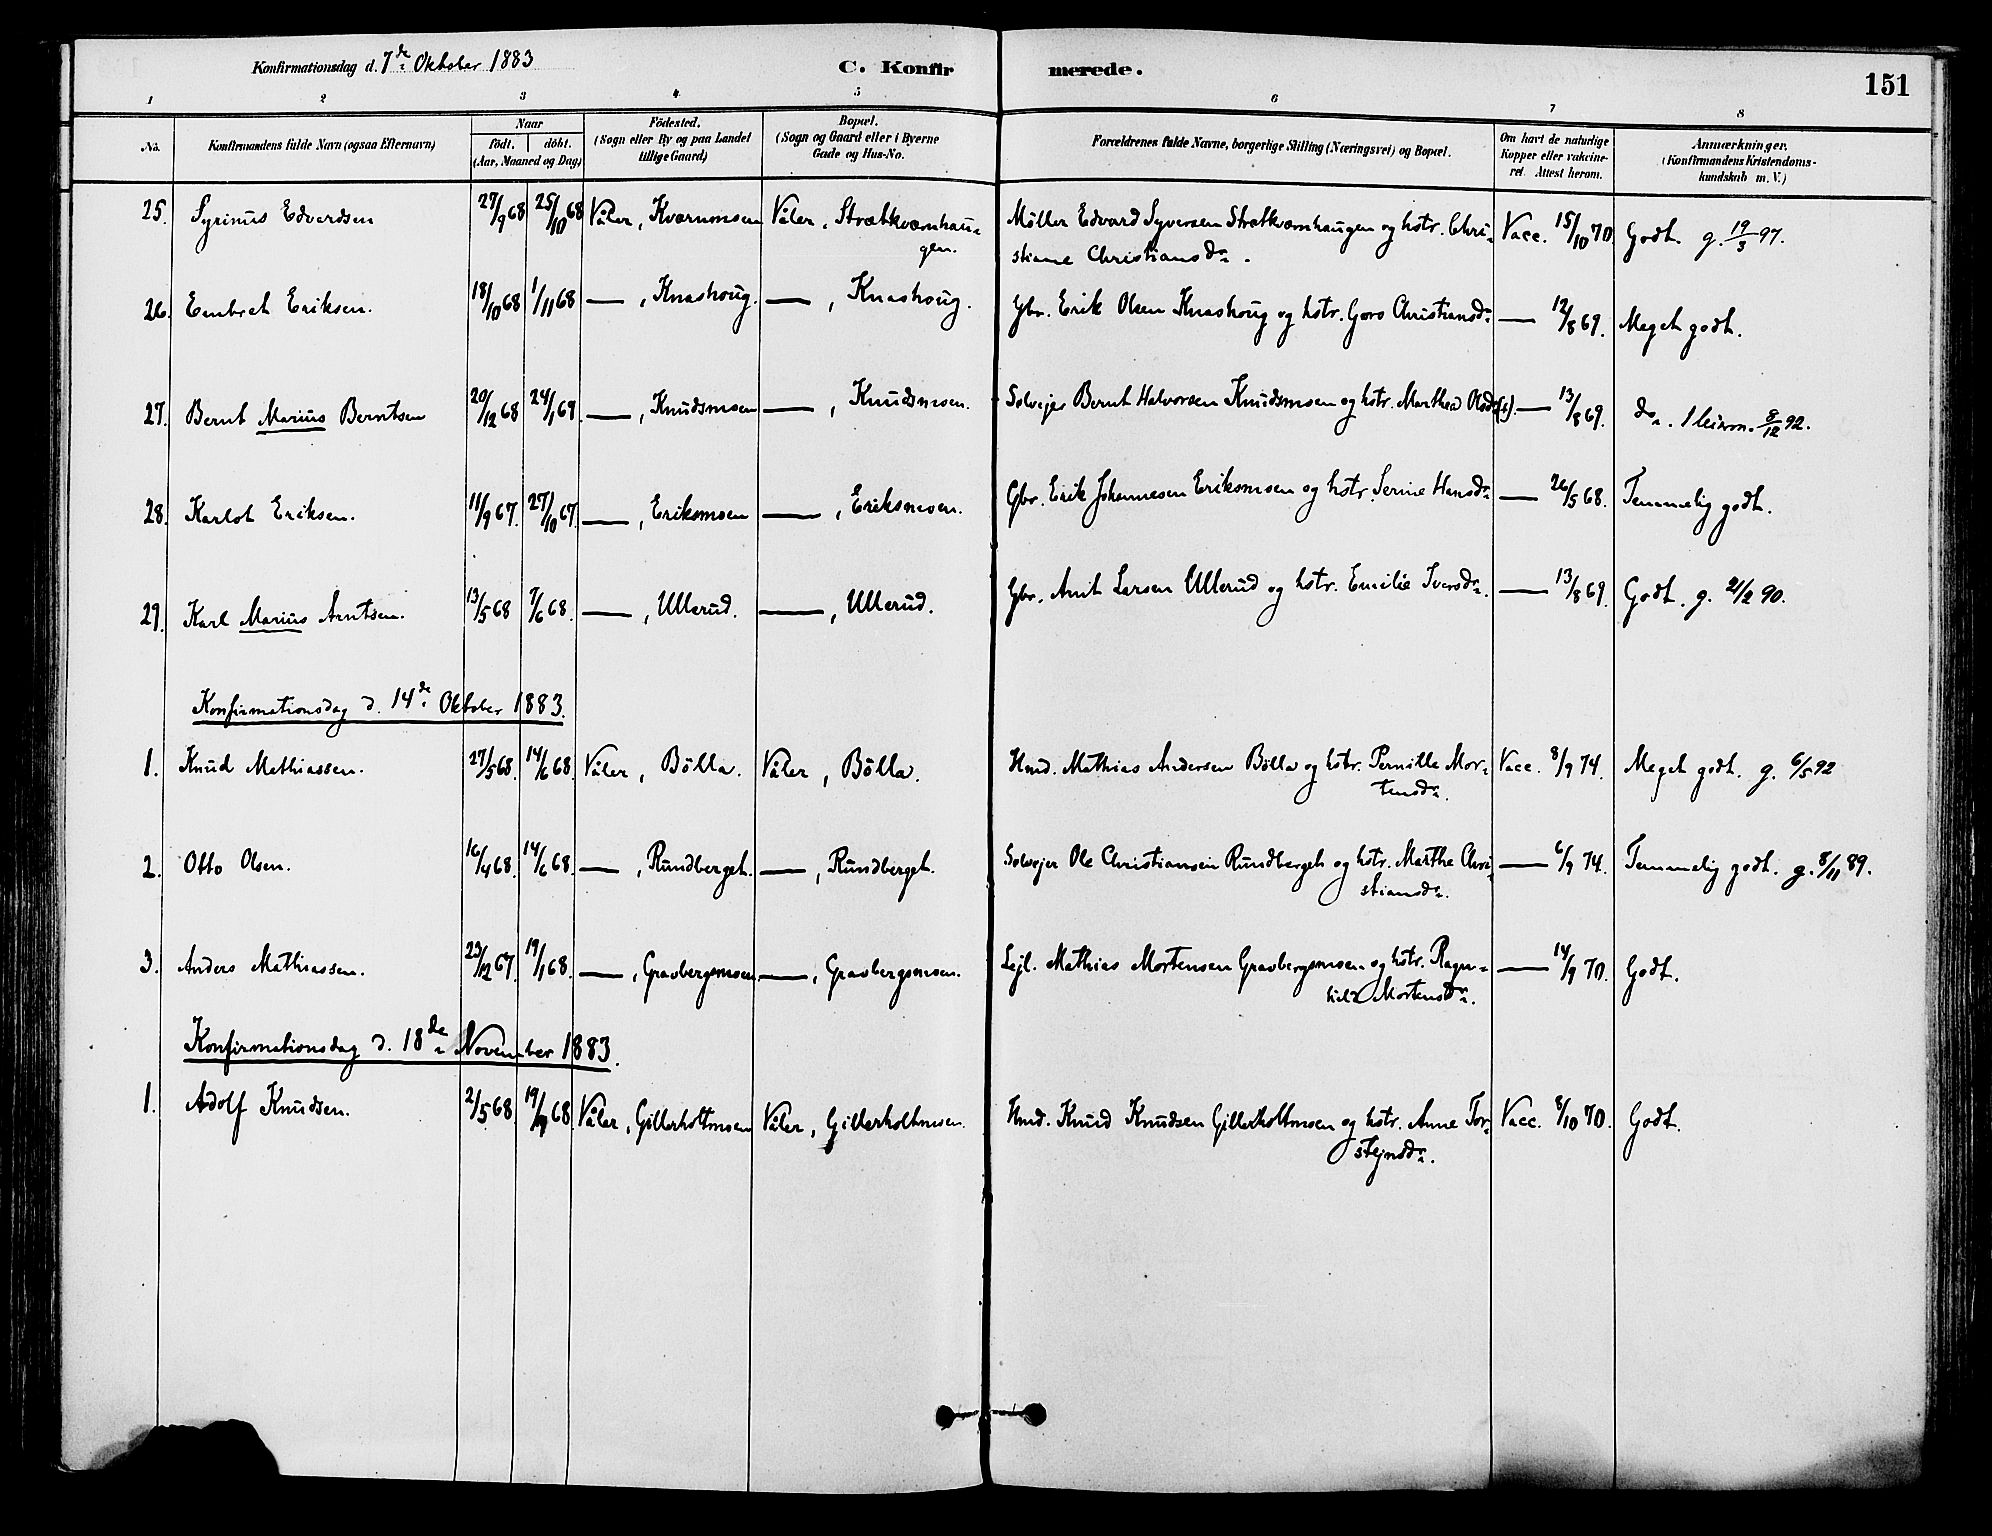 Konfirmationsdag d. 7de Oktober 1883 C. Konfirmerede. 151
1 2 3 4 5 6 7 8
No. Konfirmandens fulde Navn (ogsaa Efternavn) Naar födt. döbt. (Aar, Maaned og Dag) Födested. (Sogn eller By og paa Landet tillige Gaard) Bopæl. (Sogn og Gaard eller i Byerne Gade og Hus-No. Forældrenes fulde Navne, borgerlige Stilling (Næringsvei) og Bopæl. Om havt de naturlige Kopper eller vakcineret. Attest herom. Anmærkninger. (Konfirmandens Kristendomskundskab m. V.)
25. Syrinus Edvardsen 27/9 68 25/10 68 Våler, Kværnmoen Våler, Strætkværnhaugen. Møller Edvard Syversen Strætkværnhaugen og hstr. Christiane Christiansdr. Vacc. 15/10 70. Godt. g. 19/3 97.
26. Embret Eriksen. 18/10 68 1/11 68 — , Knashoug. — , Knashoug. Gbr. Erik Olsen Knashoug og hstr. Goro Christiansdr — 12/8 69. Meget godt.
27. Bernt Marius Berntsen 20/12 68 24/1 69. — , Knudsmoen — , Knudsmoen. Selvejer Bernt Halvorsen Knudsmoen og hstr. Marthea Olsdr — 13/8 69. do. 8/12 92.
28. Karlot Eriksen. 11/9 67. 27/10 67. — , Eriksmoen — , Eriksmoen. Gbr. Erik Johannesen Eriksmoen og hstr. Serine Hansdr — 26/5 68. Temmelig godt.
29. Karl Marius Arntsen. 13/5 68 7/6 68. — , Ullerud. — , Ullerud. Gbr. Arnt Larsen Ullerud og hstr. Emilie Iversdr. — 13/8 69. Godt. g. 21/2 90.
Konfirmationsdag d. 14de Oktober 1883.
1. Knud Mathiassen. 27/5 68. 14/6 68. Våler, Bölla. Våler, Bölla. Hmd. Mathias Andersen Bölla og hstr. Pernille Mortensdr. Vacc. 8/9 74. Meget godt. g. 6/5 92
2. Otto Olsen. 16/4 68. 14/6 68. — , Rundberget. — , Rundberget. Selvejer Ole Christiansen Rundberget og hstr. Marthe Christiansdr. — 6/9 74. Temmelig godt. g. 8/11 89.
3. Anders Mathiassen. 23/12 67. 19/1 68. — , Gravbergsmoen — , Gravbergsmoen. Lejl. Mathias Mortensen Gravbergsmoen og hstr. Ragnhild Mortensdr. — 14/9 70. Godt.
Konfirmationsdag d. 18de November 1883.
1. Adolf Knudsen. 2/5 68. 19/7 68 Våler, Gillerholtmoen Våler, Gillerholtmoen. Hmd. Knud Knudsen Gillerholtmoen og hstr. Anne Torstejnsdr. Vacc. 8/10 70. Godt.